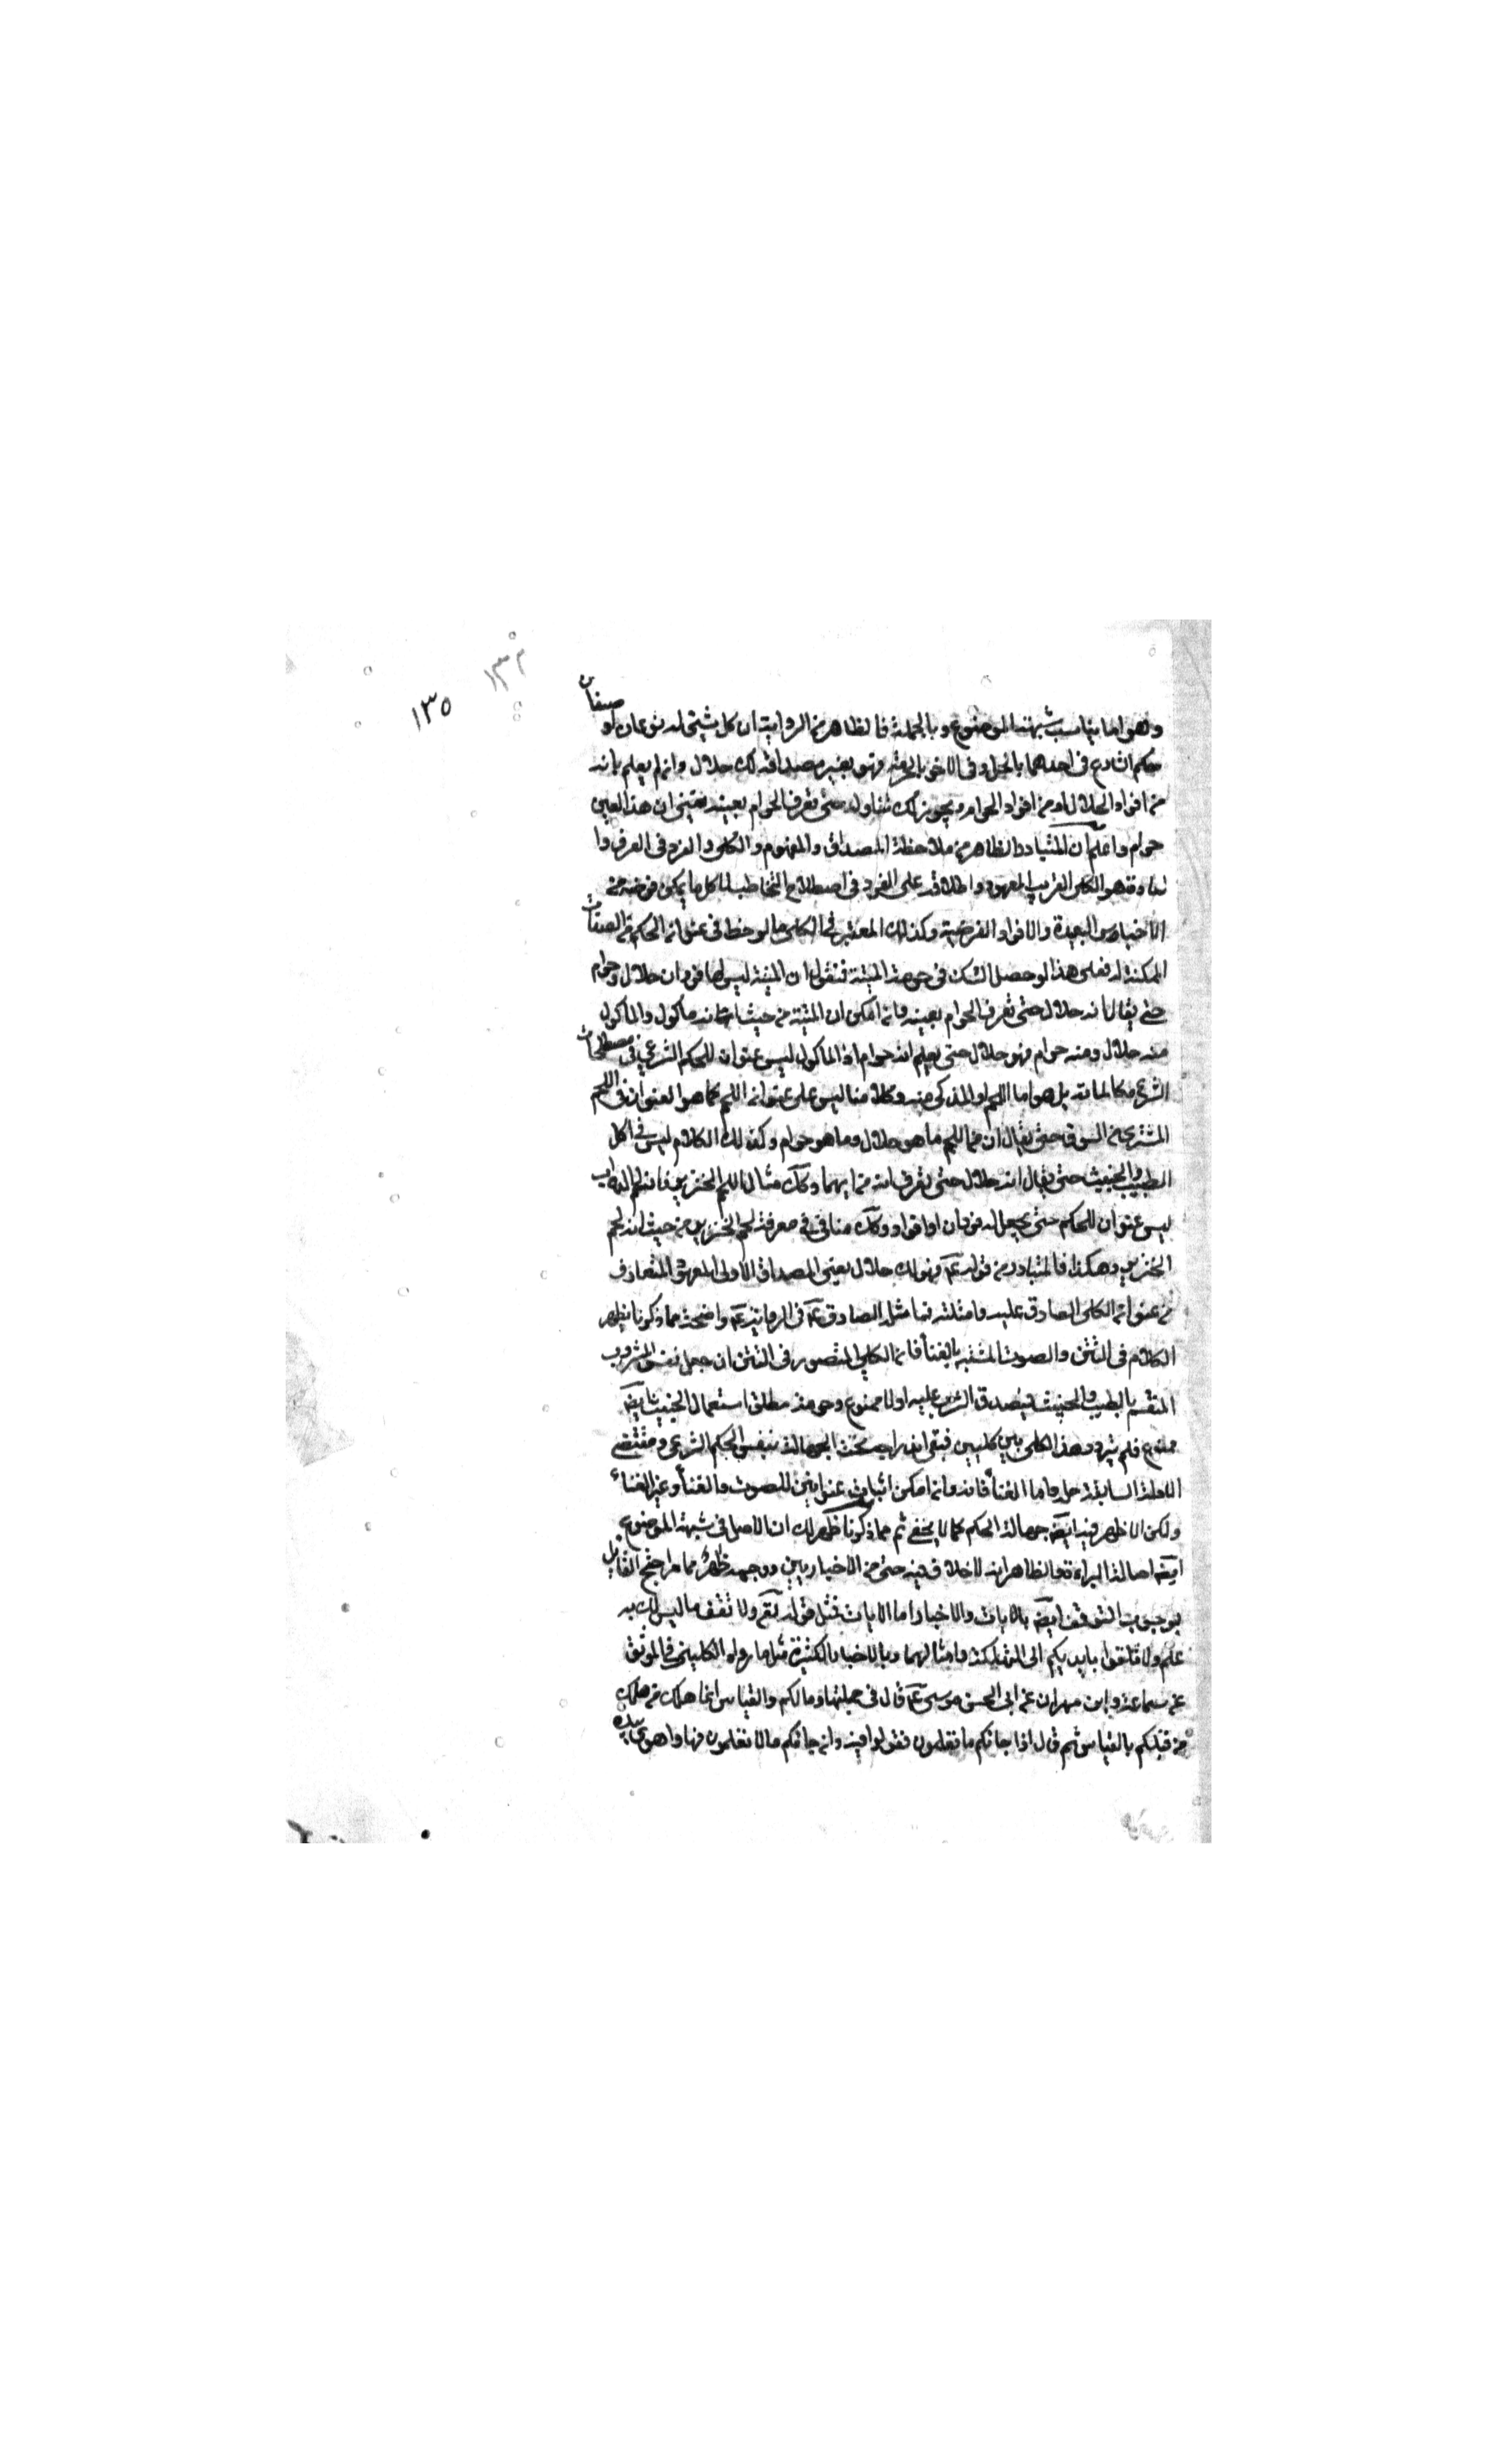 ١٣٢
١٣٥
وهو اما يناسب شبهة الموضوع وبالجملة فالظاهر من الرواية ان كل شيئ له نوعان او صنفان
حكم الشارع فى احدهما بالحل وفى الاخر بالحرمة فهو بغير مصداقه لك حلال وان لم يعلم بانه
من افراد الحلال او من افراد الحرام ويجوز لك تناوله حتى تعرف الحرام بعينه يعنى ان هذا العين
حرام واعلم ان المتبادر الظاهر من ملاحظة المصداق والمفهوم والكلى والفرد فى العرف وا
لعادة هو الكلى القريب المعهود واطلاقه على الفرد فى اصطلاح التخاطب لا كل ما يمكن فرضه من
الاجناس البعيدة والافراد الفرضية وكذلك المعتبر فى الكلى ما لوحظ فى عنوان الحكم من الصفات
الممكنة له فعلى هذا لو حصل الشك فى حرمة الميتة فنقول ان الميتة ليس لها فردان حلال وحرام
حتى يقال انه حلال حتى تعرف الحرام بعينه وان امكن ان الميتة من حيث انها مأكول والمأكول
منه حلال ومنه حرام فهو حلال حتى يعلم انه حرام اذ المأكول ليس عنوان للحكم الشرعى فى مصطلحات
الشرع كالمائة بل هو اما اللحم او المذكى منه وكلامنا ليس على عنوان اللحم كما هو العنوان فى اللحم
المشترى من السوق حتى يقال ان من اللحم ما هو حلال وما هو حرام وكذلك الكلام ليس فى اكل
الطيب والخبيث حتى يقال انه حلال حتى يعرف انه من ايهما وكك مثال اللحم الخنزير فان لحم الدواب
ليس عنوان للحكم حتى يجعل له فردان او افراد وكك منافى فى معرفة لحم الخنزير من حيث انه لحم
الخنزير وهكذا فالمتبادر من قوله ع فهو لك حلال يعنى المصداق الاولى المعهود المتعارف
من عنوان الكلى الصادق عليه وامثلته فيما مثله الصادق ع فى الروايتين ع واضحة مما ذكرنا يظهر
الكلام فى التتن والصوت المشتبه بالغناء فان الكلى المتصور فى التتن ان جعل نفس المشروب
المنقسم بالطيب والخبيث فيصدق الشرب عليه اولا ممنوع وحرمة مطلق استعمال الخبيث ثانيا ايضا
ممنوع فلم يتردد هذا الكلى بين كليين فبقى اندراجه تحت الجهالة بنفس الحكم الشرعى ومقتضى
الادلة السابقة حله واما الغناء فانه وان امكن اثبات عنوانين للصوت والغناء وغير الغناء
ولكن الاظهر فيه ايضا جهالة الحكم كما لا يخفى ثم مما ذكرنا ظهر لك ان الاصل فى شبهة الموضوع
ايضا اصالة البراءة والظاهر انه لا خلاف فيه حتى من الاخباريين ووجهه ظاهر مما مر احتج القائل
بوجوب التوقف ايضا بالايات والاخبار اما الايات فمثل قوله تعم ولا تقف ما ليس لك به
علم ولا تلقوا بايديكم الى التهلكة وامثالهما وبالاخبار الكثيرة مثل ما رواه الكلينى فى الموثق
عن سماعة وابن مهران عن ابى الحسن موسى ع قال فى جملتها وما لكم والقياس انما هلك من هلك
من قبلكم بالقياس ثم قال اذا جائكم ما تعلمون فقولوا فيه وان جائكم ما لا تعلمون فها واهوى بيده